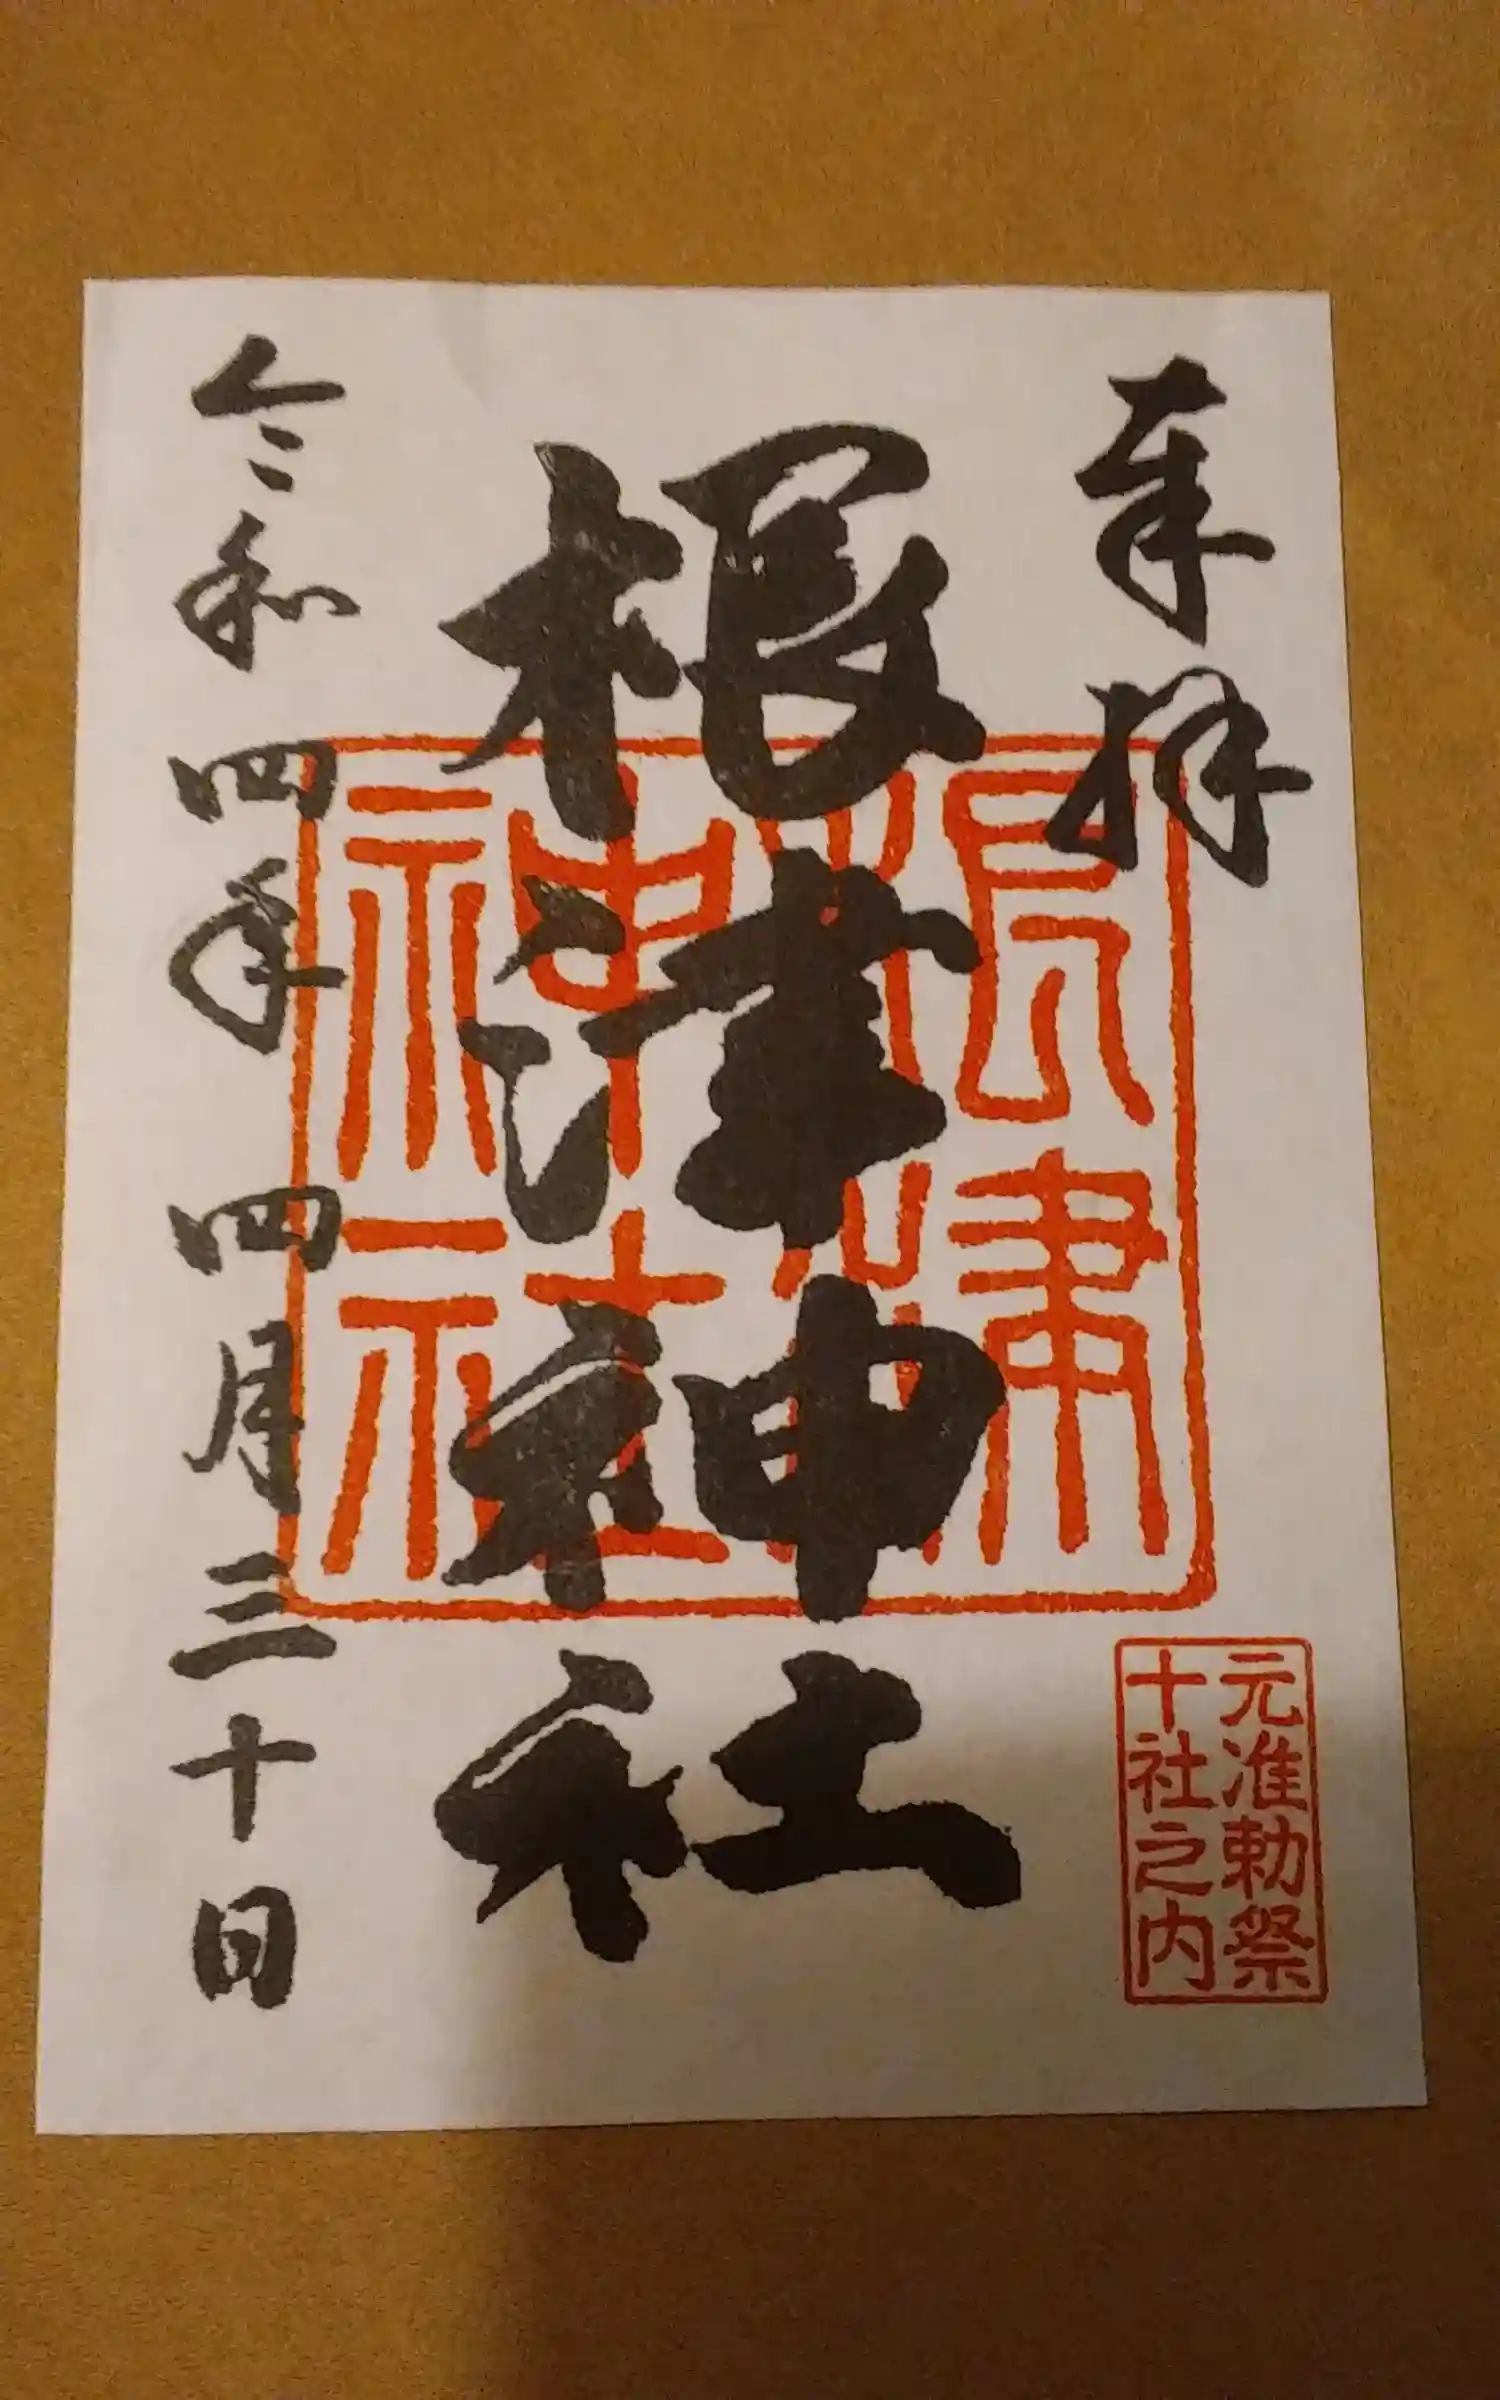 奉拝
根津神社
根津
神社
元准勅祭
十社之内
令和四年四月三十日